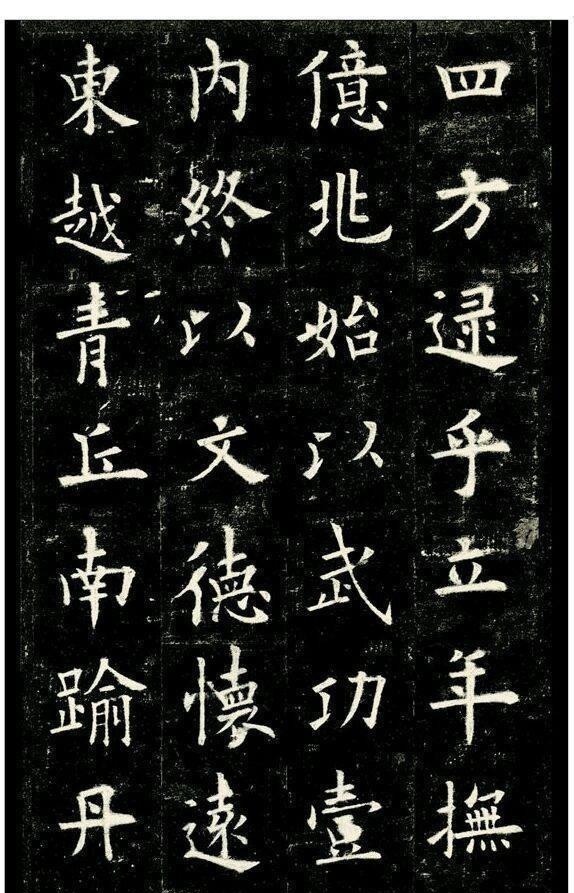 四方逮乎立年撫
億兆始以武功壹
内終以文德懷遠
東越青丘南踰丹